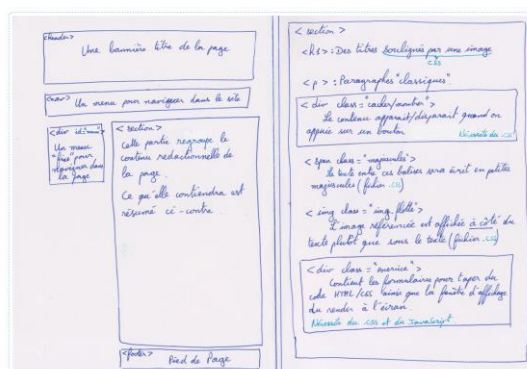 <header>
Une bannière titre de la page
<nav> Un menu pour naviguer dans le site
<div id="menu">
Un menu
"fixe" pour
naviguer dans
la page
<section>
Cette partie regroupe le
contenu rédactionnelle de
la page.
Ce qu'elle contiendra est
résumé ci-contre.
<footer> Pied de Page
<section>
<h1> : Des titres soulignés par une image
css
<p> : Paragraphes "classiques".
<div class="cacher/montrer">
Le contenu apparait/disparait quand on
appuie sur un bouton
Nécessite du
<span class="majuscules">
le texte entre ces balises sera écrit en petites
majuscules (fichier .css)
<img class="img_flotte">
L'image référencée est affichée à côté du
texte plutôt que sous le texte (fichier .css)
<div class="exercice">
Contient les formulaires pour taper du
code HTML/CSS ainsi que la fenêtre d'affichage
du render à l'écran.
Nécessite du CSS et du JavaScript.